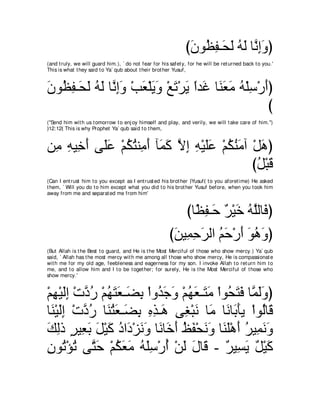 (وَإِنَّا لَهُ لَحَـفِظُونَ)
(and truly, we will guard him.), ` do not fear for his safety, for he will be returned back to you.'
This is what they said to Ya`qub about their brother Yusuf,
(أَرْسِلْهُ مَعَنَا غَداً يَرْتَعْ وَيَلْعَبْ وَإِنَّا لَهُ لَحَـفِظُونَ
)
("Send him with us tomorrow to enjoy himself and play, and verily, we will take care of him.")
)12:12( This is why Prophet Ya`qub said to them,
(هَلْ آمَنُكُمْ عَلَيْهِ إِلاَّ كَمَآ أَمِنتُكُمْ عَلَى أَخِيهِ مِن
قَبْلُ)
(Can I entrust him to you except as I entrusted his brother )Yusuf( to you aforetime) He asked
them, ` Will you do to him except what you did to his brother Yusuf before, when you took him
away from me and separated me from him'
(فَاللَّهُ خَيْرٌ حَـفِظًا)
(وَهُوَ أَرْحَمُ الرَحِمِينَ)
(But Allah is the Best to guard, and He is the Most Merciful of those who show mercy.) Ya`qub
said, ` Allah has the most mercy with me among all those who show mercy, He is compassionate
with me for my old age, feebleness and eagerness for my son. I invoke Allah to return him to
me, and to allow him and I to be together; for surely, He is the Most Merciful of those who
show mercy.'
(وَلَمَّا فَتَحُواْ مَتَـعَهُمْ وَجَدُواْ بِضَـعَتَهُمْ رُدَّتْ إِلَيْهِمْ
قَالُواْ يأَبَانَا مَا نَبْغِى هَـذِهِ بِضَـعَتُنَا رُدَّتْ إِلَيْنَا
وَنَمِيرُ أَهْلَنَا وَنَحْفَظُ أَخَانَا وَنَزْدَادُ كَيْلَ بَعِيرٍ ذَلِكَ
كَيْلٌ يَسِيرٌ - قَالَ لَنْ أُرْسِلَهُ مَعَكُمْ حَتَّى تُؤْتُونِ